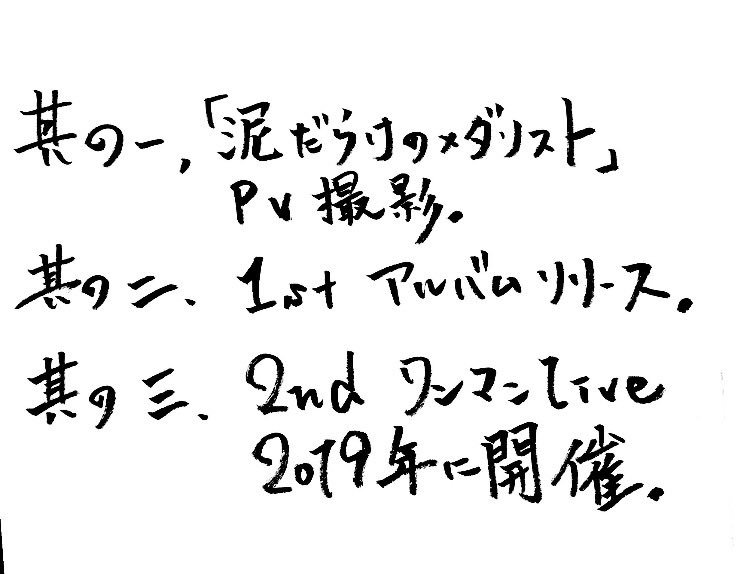 其の一、「泥だらけのメダリスト」
PV撮影。
其の二、1st アルバムリリース。
其の三、2nd ワンマンlive
2019年に開催。